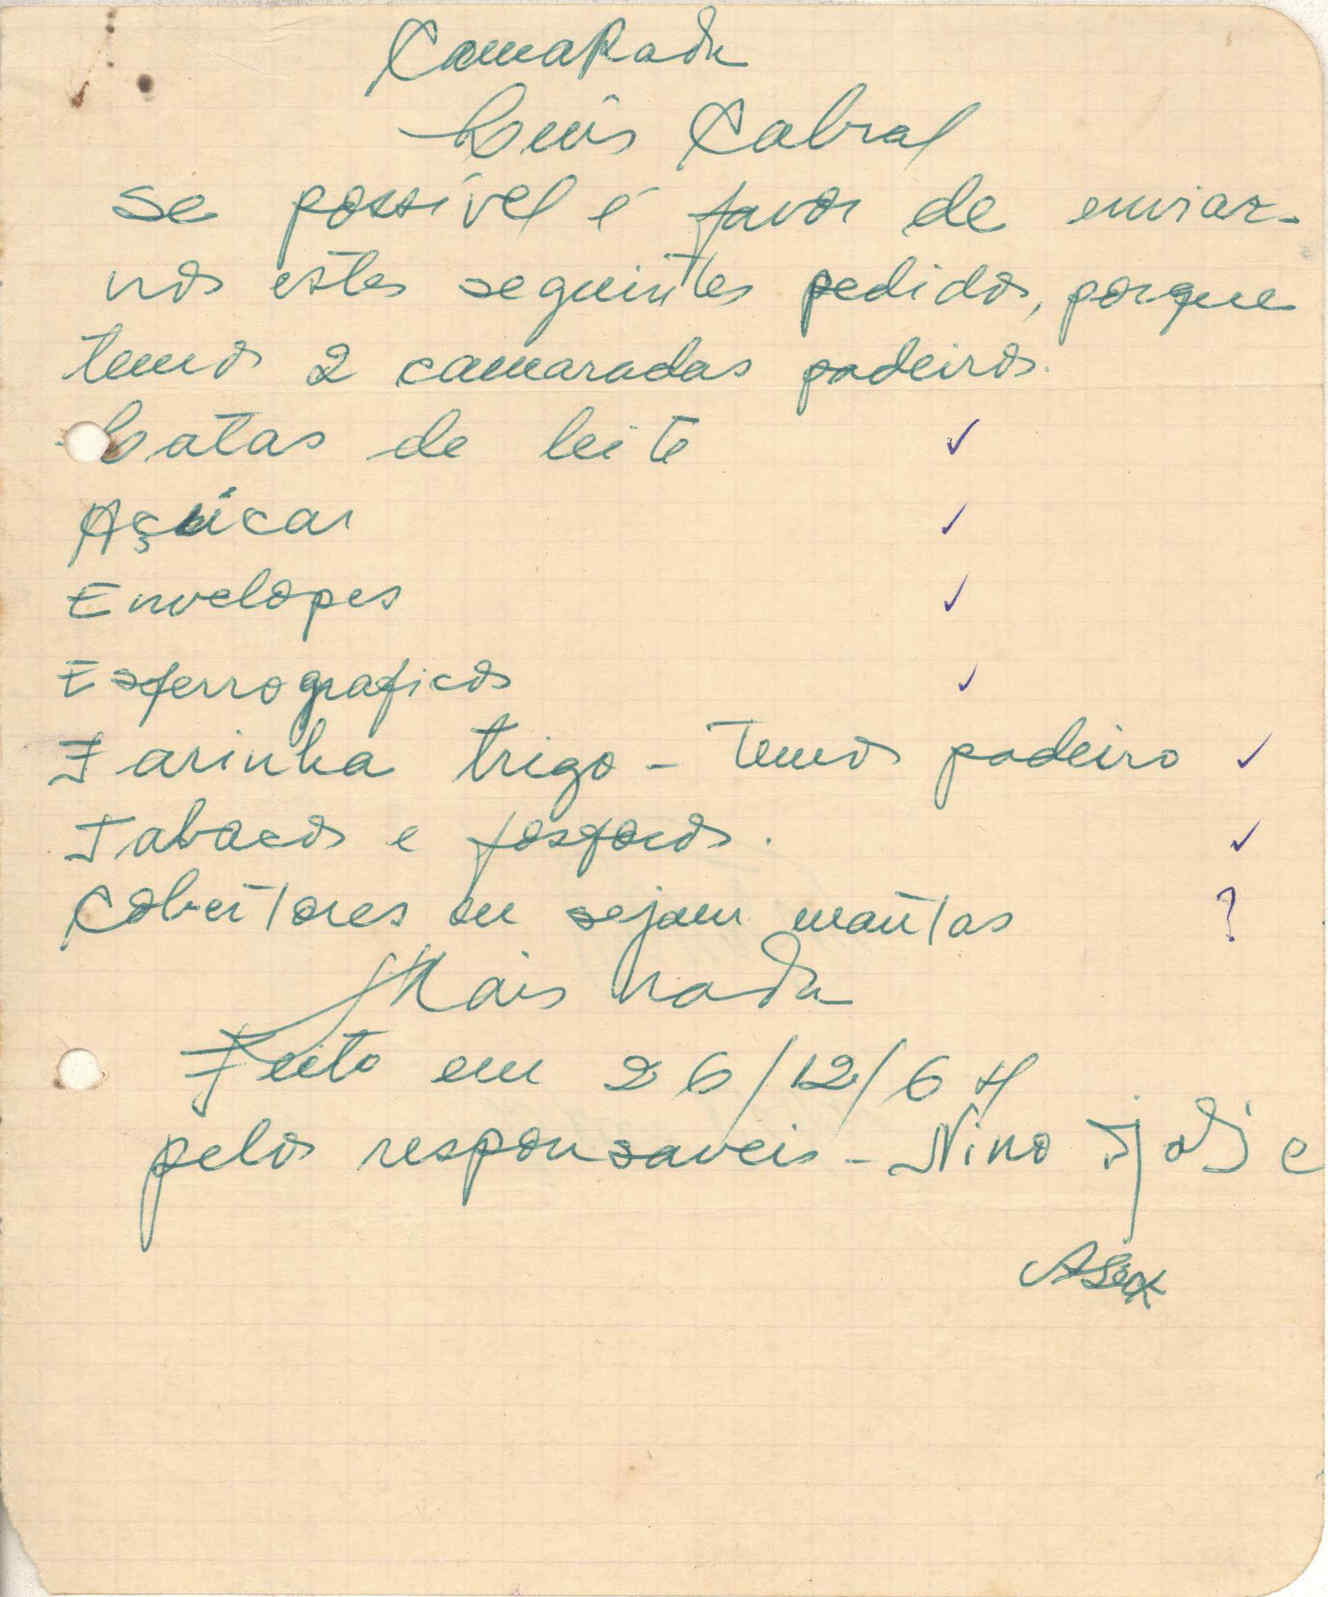 Camarada
Luís Cabral
se possível é favor de enviar-
nos estes seguintes pedidos, porque
temos 2 camaradas padeiros.
Latas de leite ✓
Açúcar ✓
Envelopes ✓
Esferrograficos ✓
Farinha trigo - Temos padeiro ✓
Tabacos e fosforos. ✓
Cobertores ou sejam mantas ?
Mais nada
Feito em 26/12/64
pelos responsaveis - Nino e